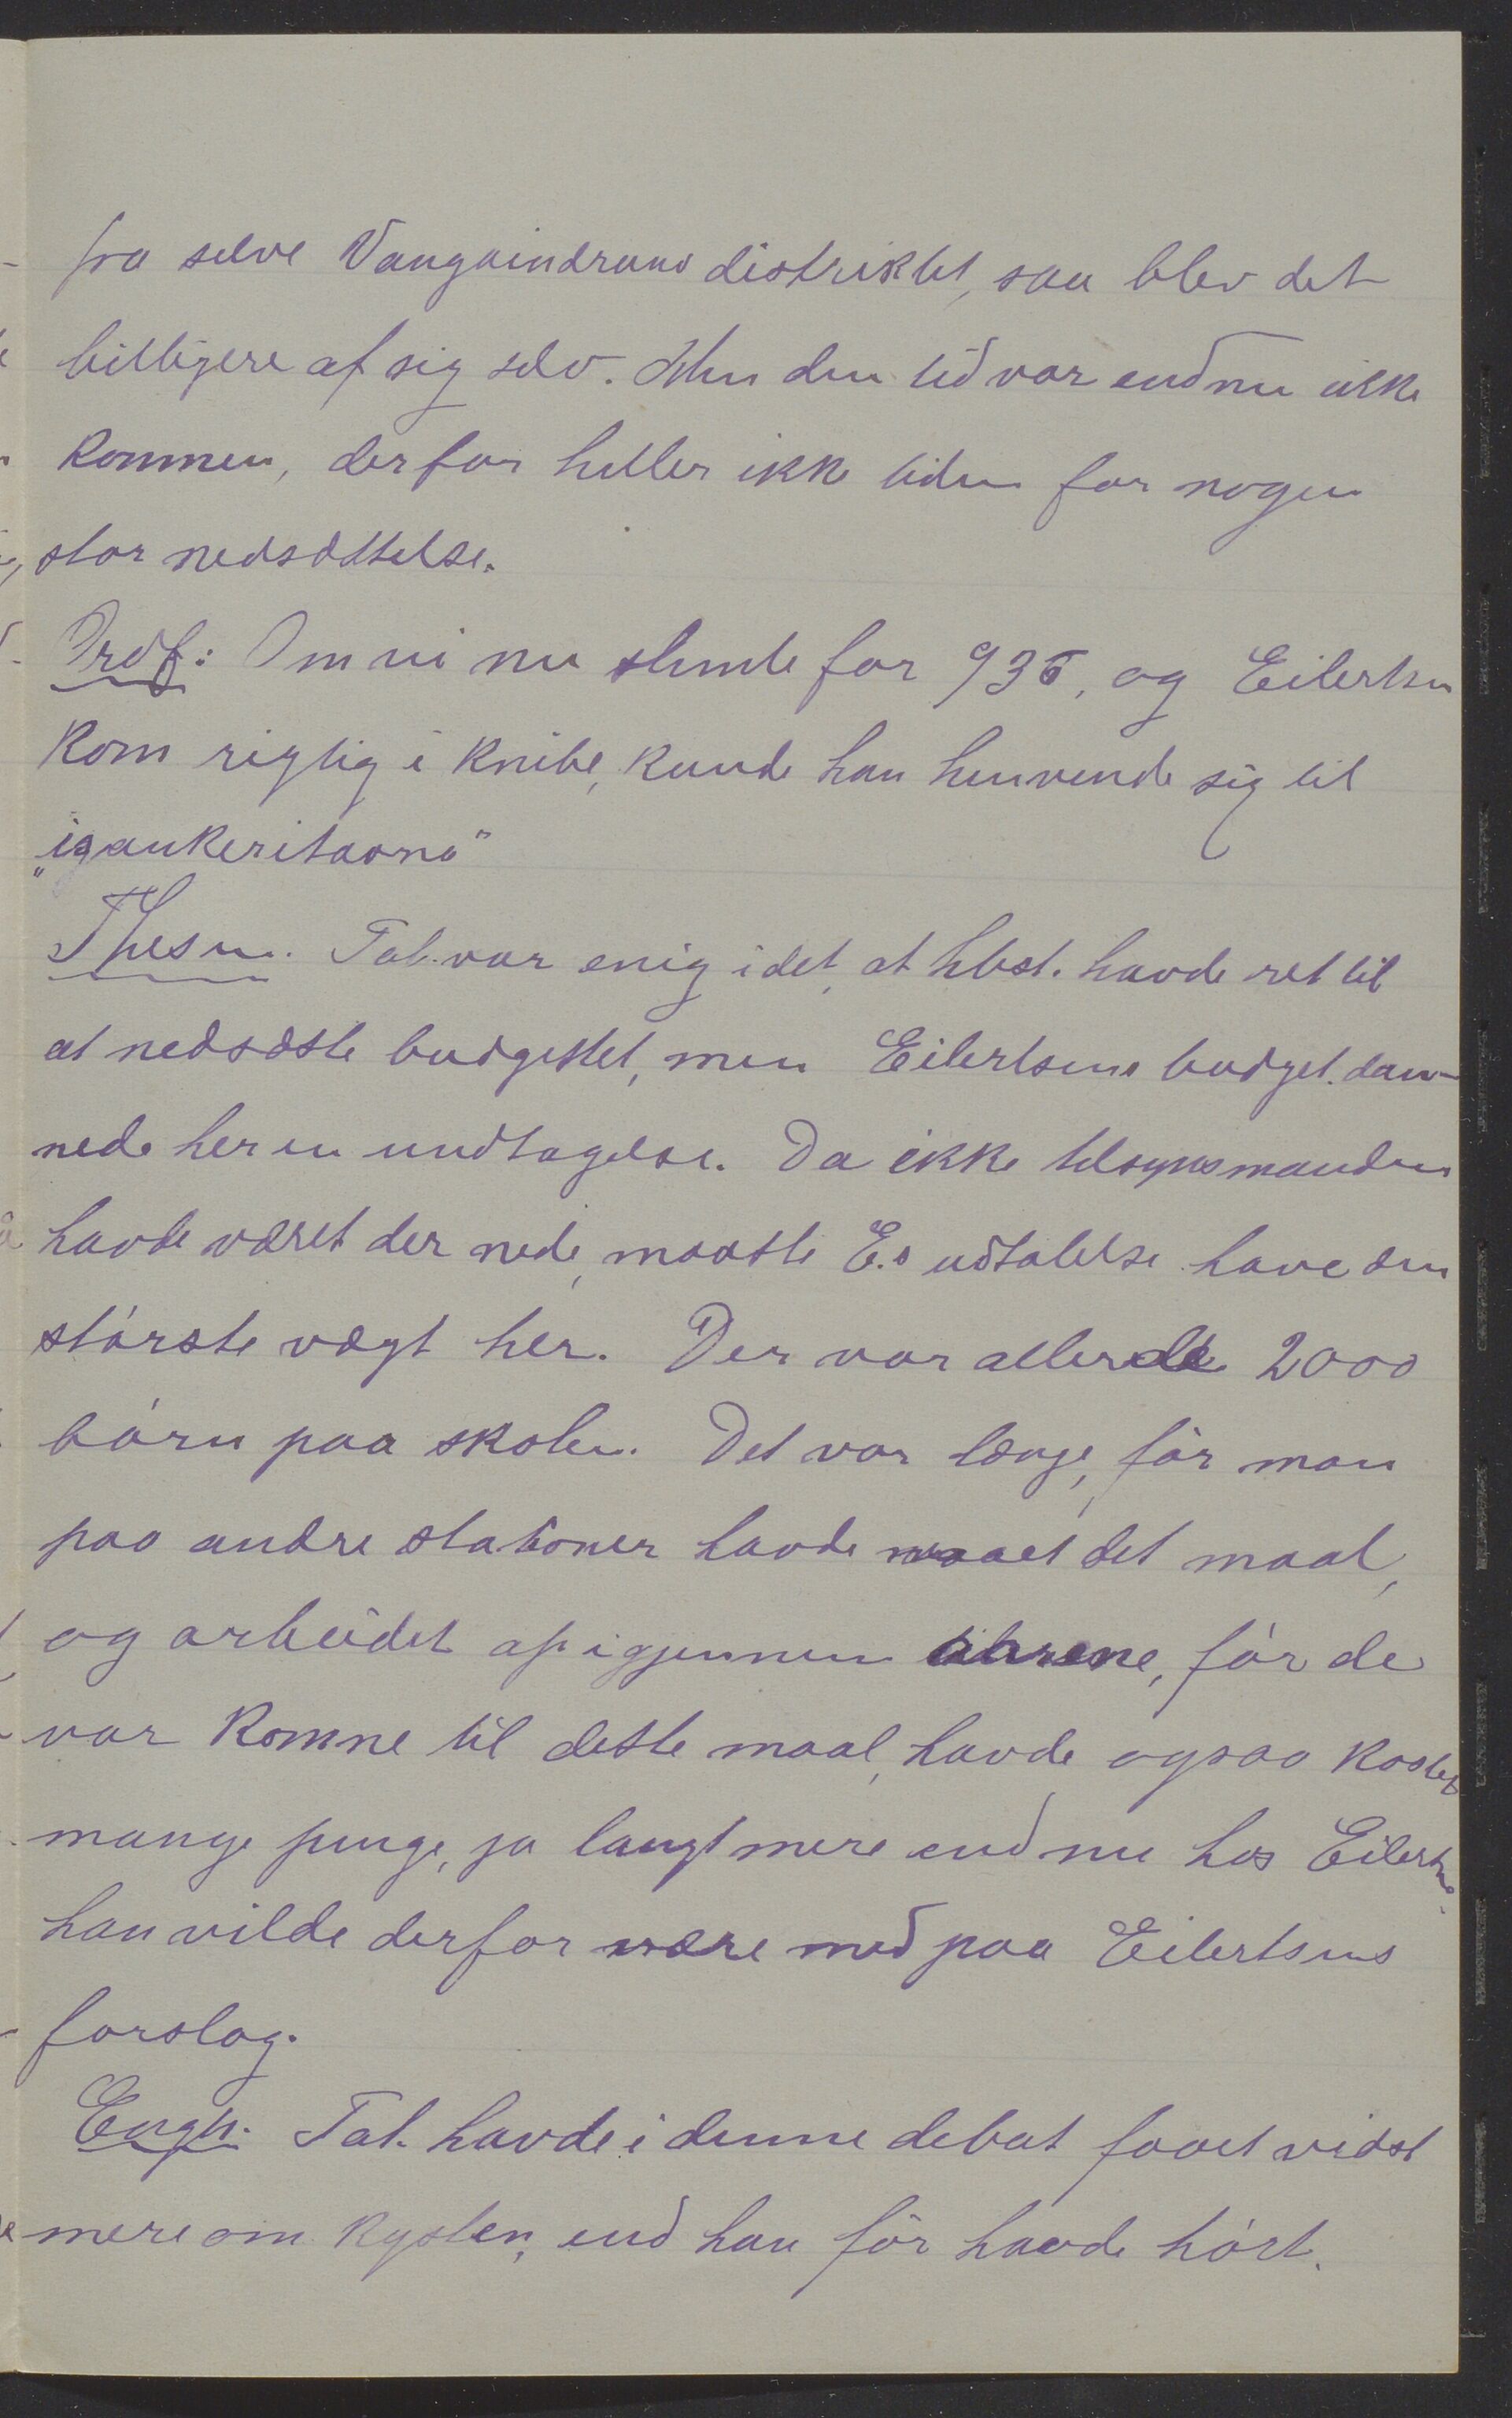 fra selve Vangaindrano distriktet, saa blev det
billigere af sig selv. Men den tid var endnu ikke
kommen, derfor heller ikke tiden for nogen
stor nedsættelse.
Prof: Om vi nu stemte for 935, og Eilertsen
kom rigtig i knibe, kunde han henvende sig til
"isankeritaona"
Thesen. Tal. var enig i det, at hbst. havde ret til
at nedsætte budgettet, men Eilertsens budget dan-
nede her en undtagelse. Da ikke tilsynsmanden
havde været der nede, maatte E.s udtalelse have den
störste vægt her. Der var allerede 2000
börn paa skolen. Det var længe, för man
paa andre stationer havde naaet det maal,
og arbeidet op igjennem aarene, för de
var komne til dette maal, havde ogsaa kostet
mange penge, ja langt mere end nu hos Eilertsen.
han vilde derfor være med paa Eilertsens
forslag.
Engh. Tal. havde i denne debat faaet vidst
mere om kysten, end han för havde hört.